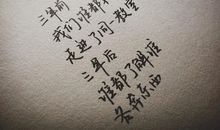 三年前
我们谁都不
走进了同一教室
三年后
谁都了解谁
各奔东西